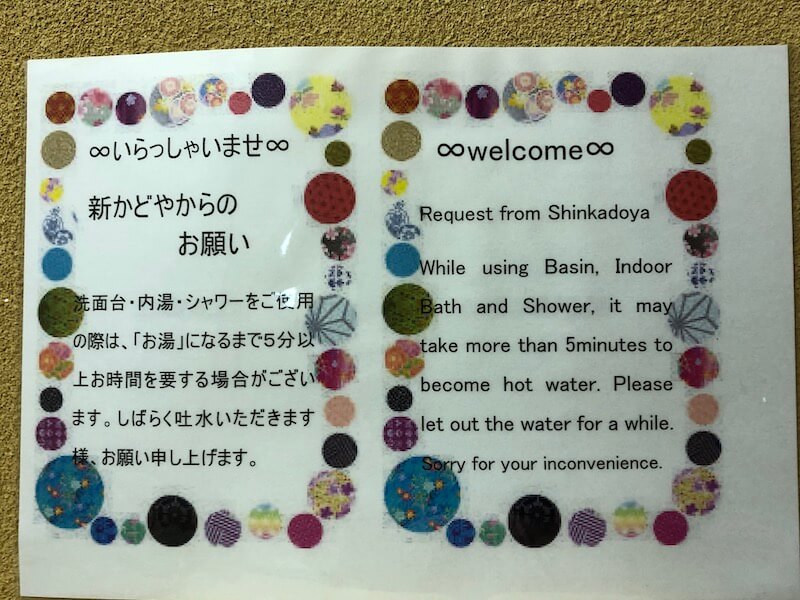 ∞いらっしゃいませ∞
新かどやからの
お願い
洗面台・内湯・シャワーをご使用
の際は、「お湯」になるまで5分以
上お時間を要する場合がござい
ます。しばらく吐水いただきます
様、お願い申し上げます。
∞welcome∞
Request from Shinkadoya
While using Basin, Indoor
Bath and Shower, it may
take more than 5minutes to
become hot water. Please
let out the water for a while.
Sorry for your inconvenience.